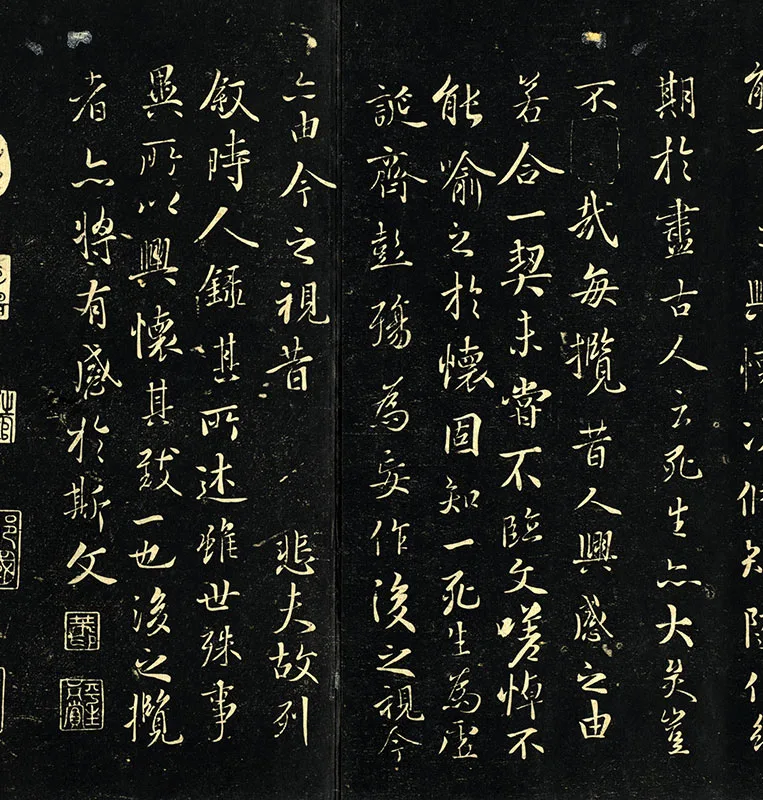 興懷況脩短隨化終
期於盡古人云死生亦大矣豈
不哉每攬昔人興感之由
若合一契未嘗不臨文嗟悼不
能喻之於懷固知一死生為虛
誕齊彭殤為妄作後之視今
亦由今之視昔悲夫故列
叙時人錄其所述雖世殊事
異所以興懷其致一也後之攬
者亦將有感於斯文